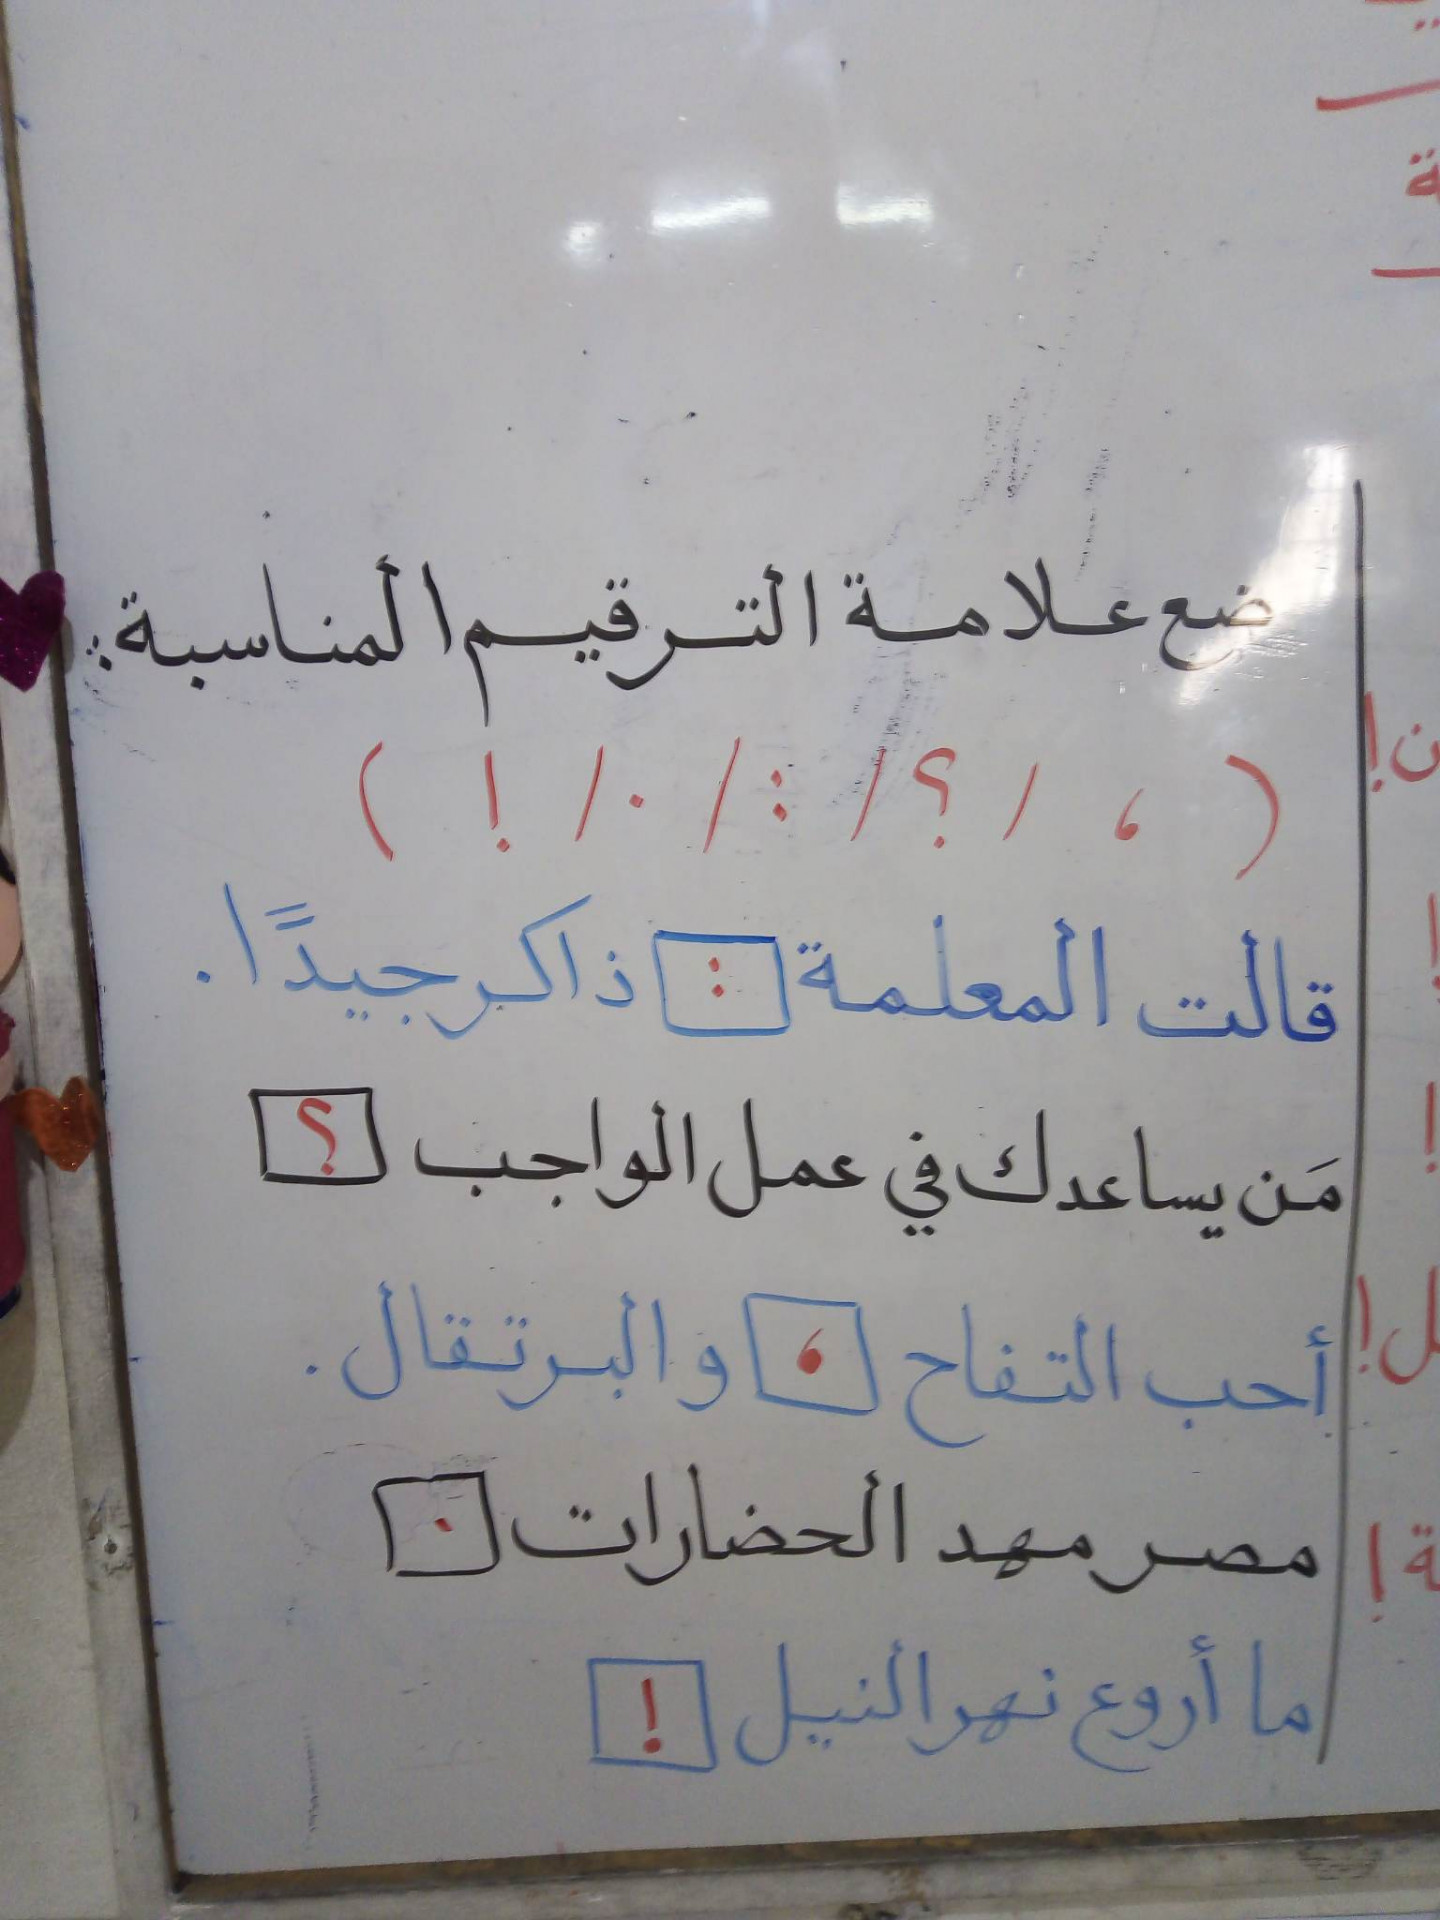 ضع علامة الترقيم المناسبة:
( ، / ؟ / : / . / ! )
قالت المعلمة : ذاكر جيدًا.
مَن يساعدك في عمل الواجب ؟
أحب التفاح ، والبرتقال.
مصر مهد الحضارات .
ما أروع نهر النيل !